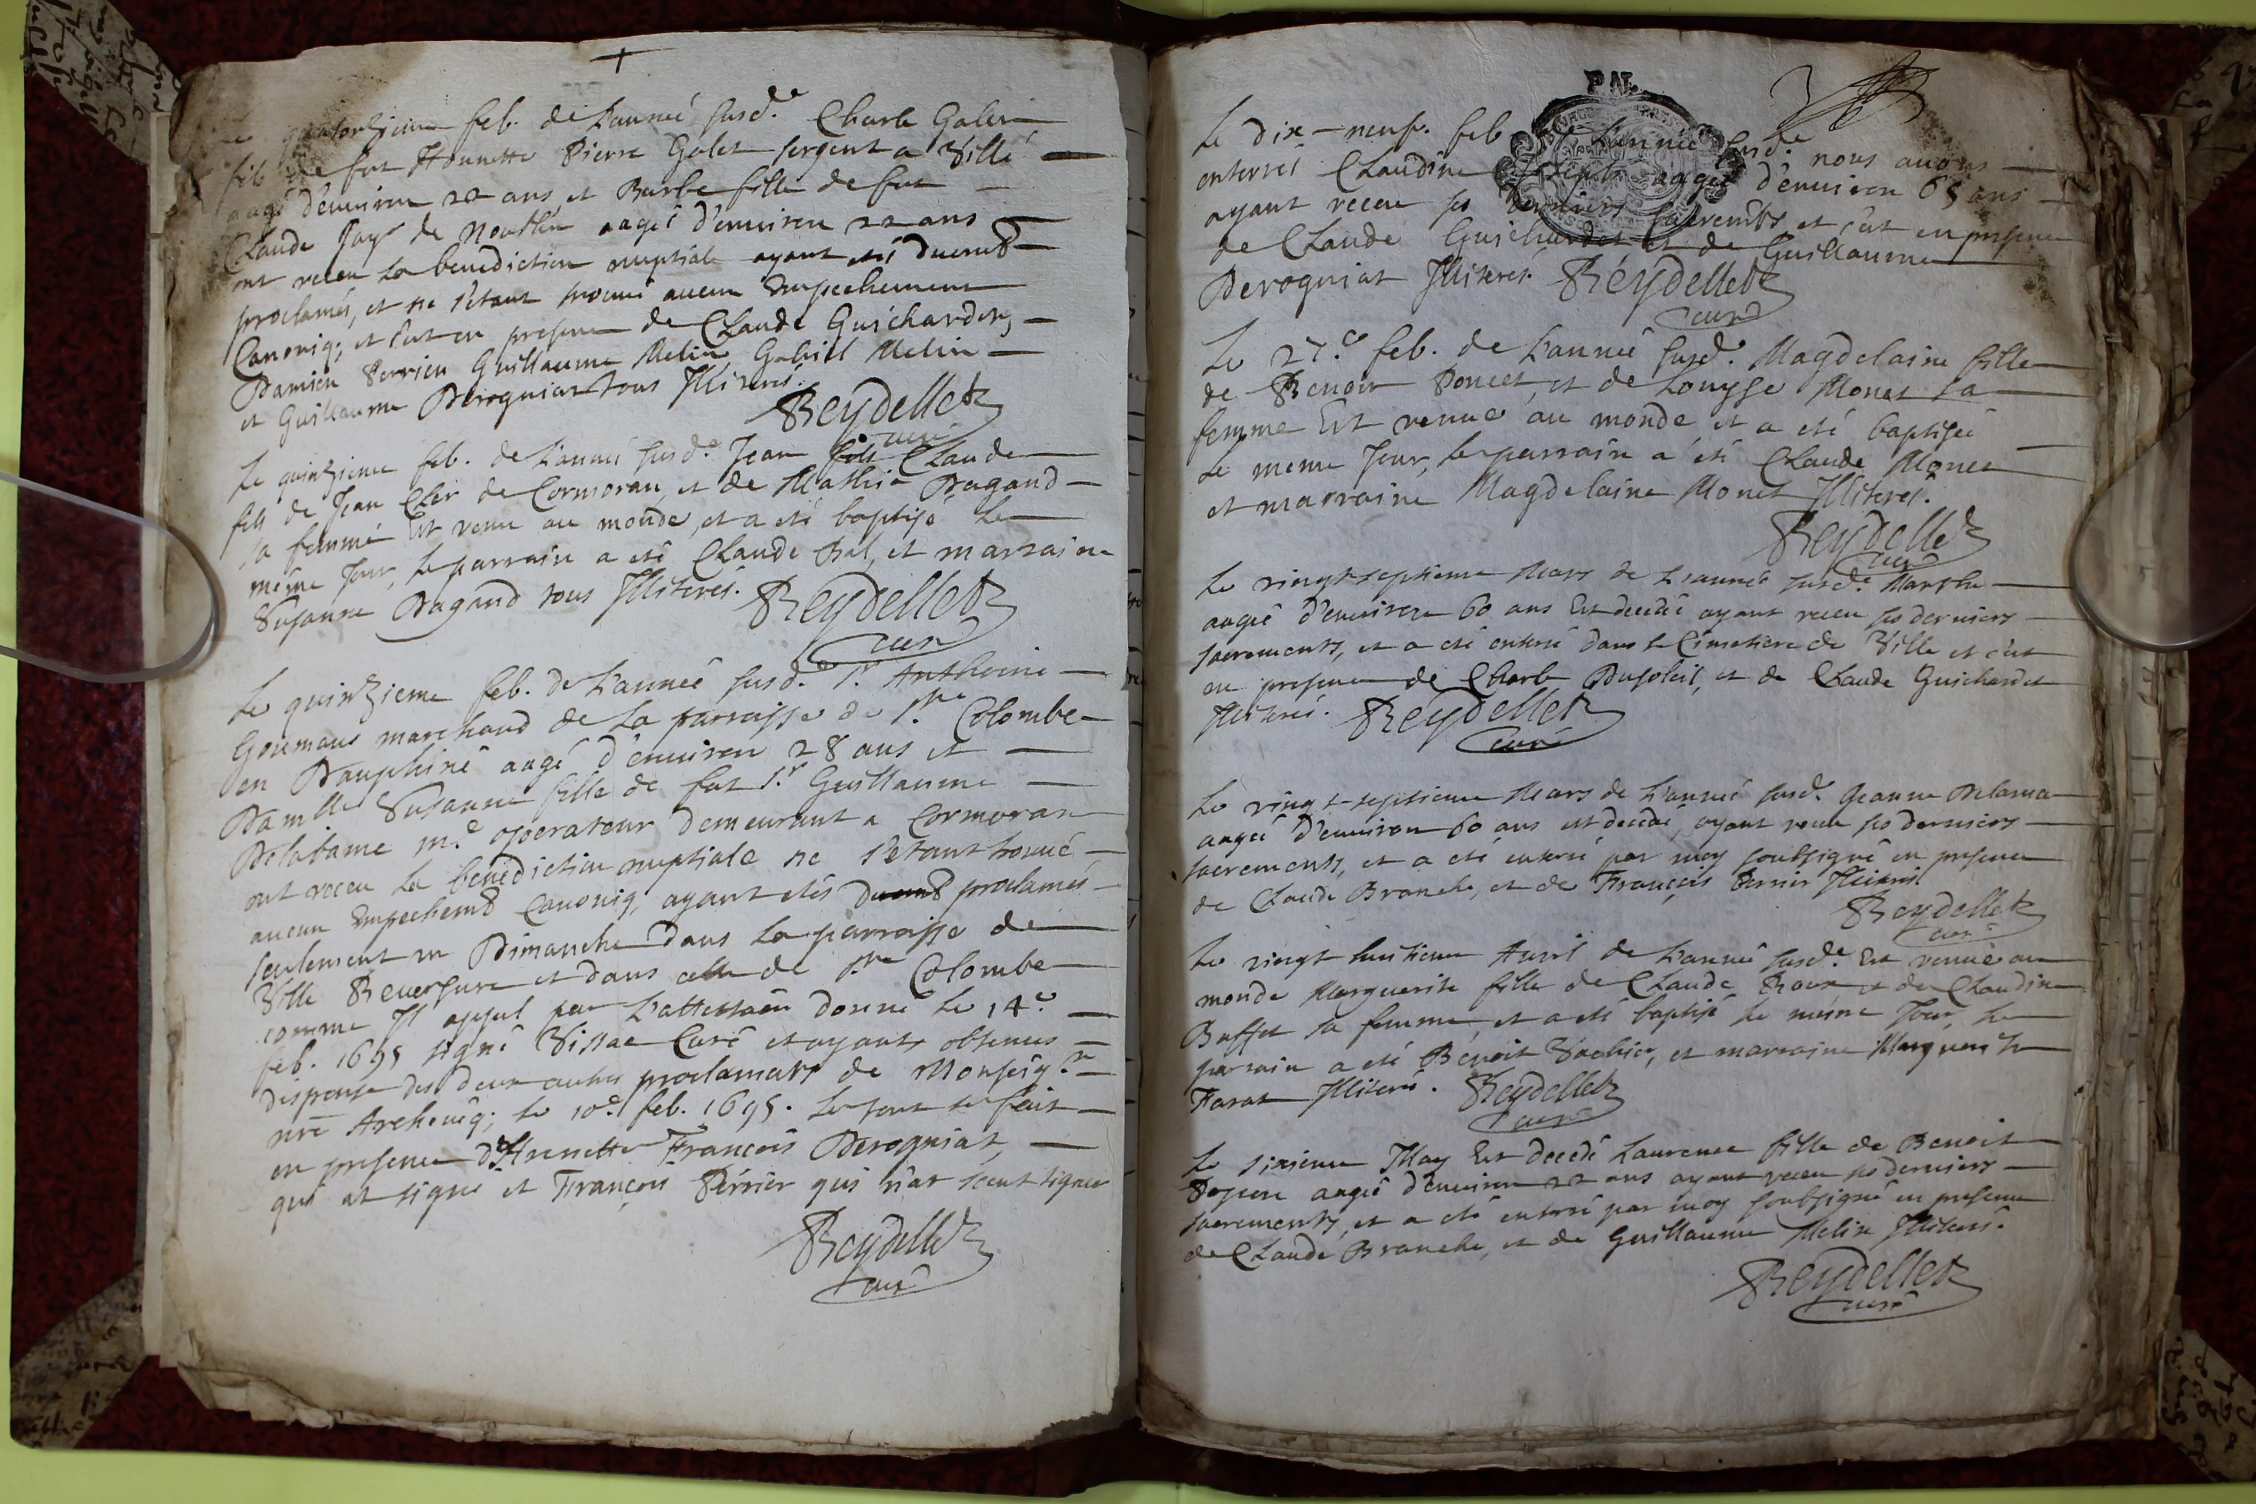 +
quatorzieme feb. de L'année susd.e Charle Galet
fils de fut Honnette Pierre Galet sergent a Villé
aagé d'environ 22 ans et Barbe fille de fut
Claude Jay de aagée d'environ 22 ans
ont receu La benediction nuptiale ayant etés
proclamés, et ne s'etant trouvé aucun Empechement
Canoniq; et c'est en presence de Claude Guichardet,
Damien Perrier Guillaume Melin Gabriel Melin
et Guillaume Derogniat tous Illiterés.
Reydellet
curé
Le quinzieme feb. de L'année susd.e Jean Claude
fils de Jean Cler de Cormoran, et de Mathie Dagand
sa femme Est venu au monde, et a eté baptisé Le
même Jour, Le parrain a eté Claude Bal, et marraine
Susanne Dagand tous Illiterés.
Reydellet
curé
Le quinzieme feb. de L'année susd.e s.r Anthoine
Goumans marchand de La parroisse de s.te Colombe
en Dauphiné aagé d'environ 28 ans et
Dam.lle Susanne fille de fut s.r Guillaume
Delabame m.e operateur demeurant a Cormoran
ont receu La benediction nuptiale ne s'etant trouvé
aucun Empechemt Canoniq, ayant etés proclamés
seulement un Dimanche dans La parroisse de
Ville Reversure et dans celle de s.te Colombe
comme Il appert par L'attestaôn donné Le 14.e
feb. 1695 signé Curé et ayants obtenus
dispense des deux autres proclamats de Monseig.r
nrê Archeveq; Le 10.e feb. 1695. Le tout se fait
en presence d'Honnette François Derogniat,
qui at signé et François Perrier qui n'at sceut signer
Reydellet
curé
PAL
Le dix-neuf. feb de L'année susd.e nous avons
enterré Claudine aagée d'environ 65 ans
ayant receu ses derniers sacrements et c'est en presence
de Claude Guichardet et de Guillaume
Derogniat Illiterés. Reydellet
curé
Le 27.e feb. de L'année susd.e Magdelaine fille
de Benoit Poncet, et de Louyse Monet sa
femme Est venue au monde et a eté baptisée
Le meme Jour, Le parrain a eté Claude Monet
et marraine Magdelaine Monet Illiterés.
Reydellet
curé
Le vingt-septieme Mars de L'année susd.e Marthe
aagée d'environ 60 ans Est decedée ayant receu ses derniers
sacrements, et a eté enterré dans le Cimetiere de Ville et c'est
en presence de Charle Dusoleil, et de Claude Guichardet
Illiterés. Reydellet
curé
Le vingt-septieme Mars de L'année susd.e Jeanne Delama
aagée d'environ 60 ans est decedé, ayant receu ses derniers
sacrements, et a eté enterré par moy soubsigné en presence
de Claude Branche, et de François Perrier Illiterés
Reydellet
curé
Le vingt huitieme Avril de L'année susd.e Est venuë au
monde Marguerite fille de Claude Roux et de Claudine
Buffet sa femme, et a eté baptisé Le meme Jour, Le
parrain a eté Benoit Vachier, et marraine Marguerite
Farat Illiterés. Reydellet
curé
Le sixieme May Est decedé Laurence fille de Benoit
aagée d'environ 22 ans ayant receu ses derniers
sacrements, et a eté enterré par moy soubsigné en presence
de Claude Branche, et de Guillaume Melin Illiterés.
Reydellet
curé